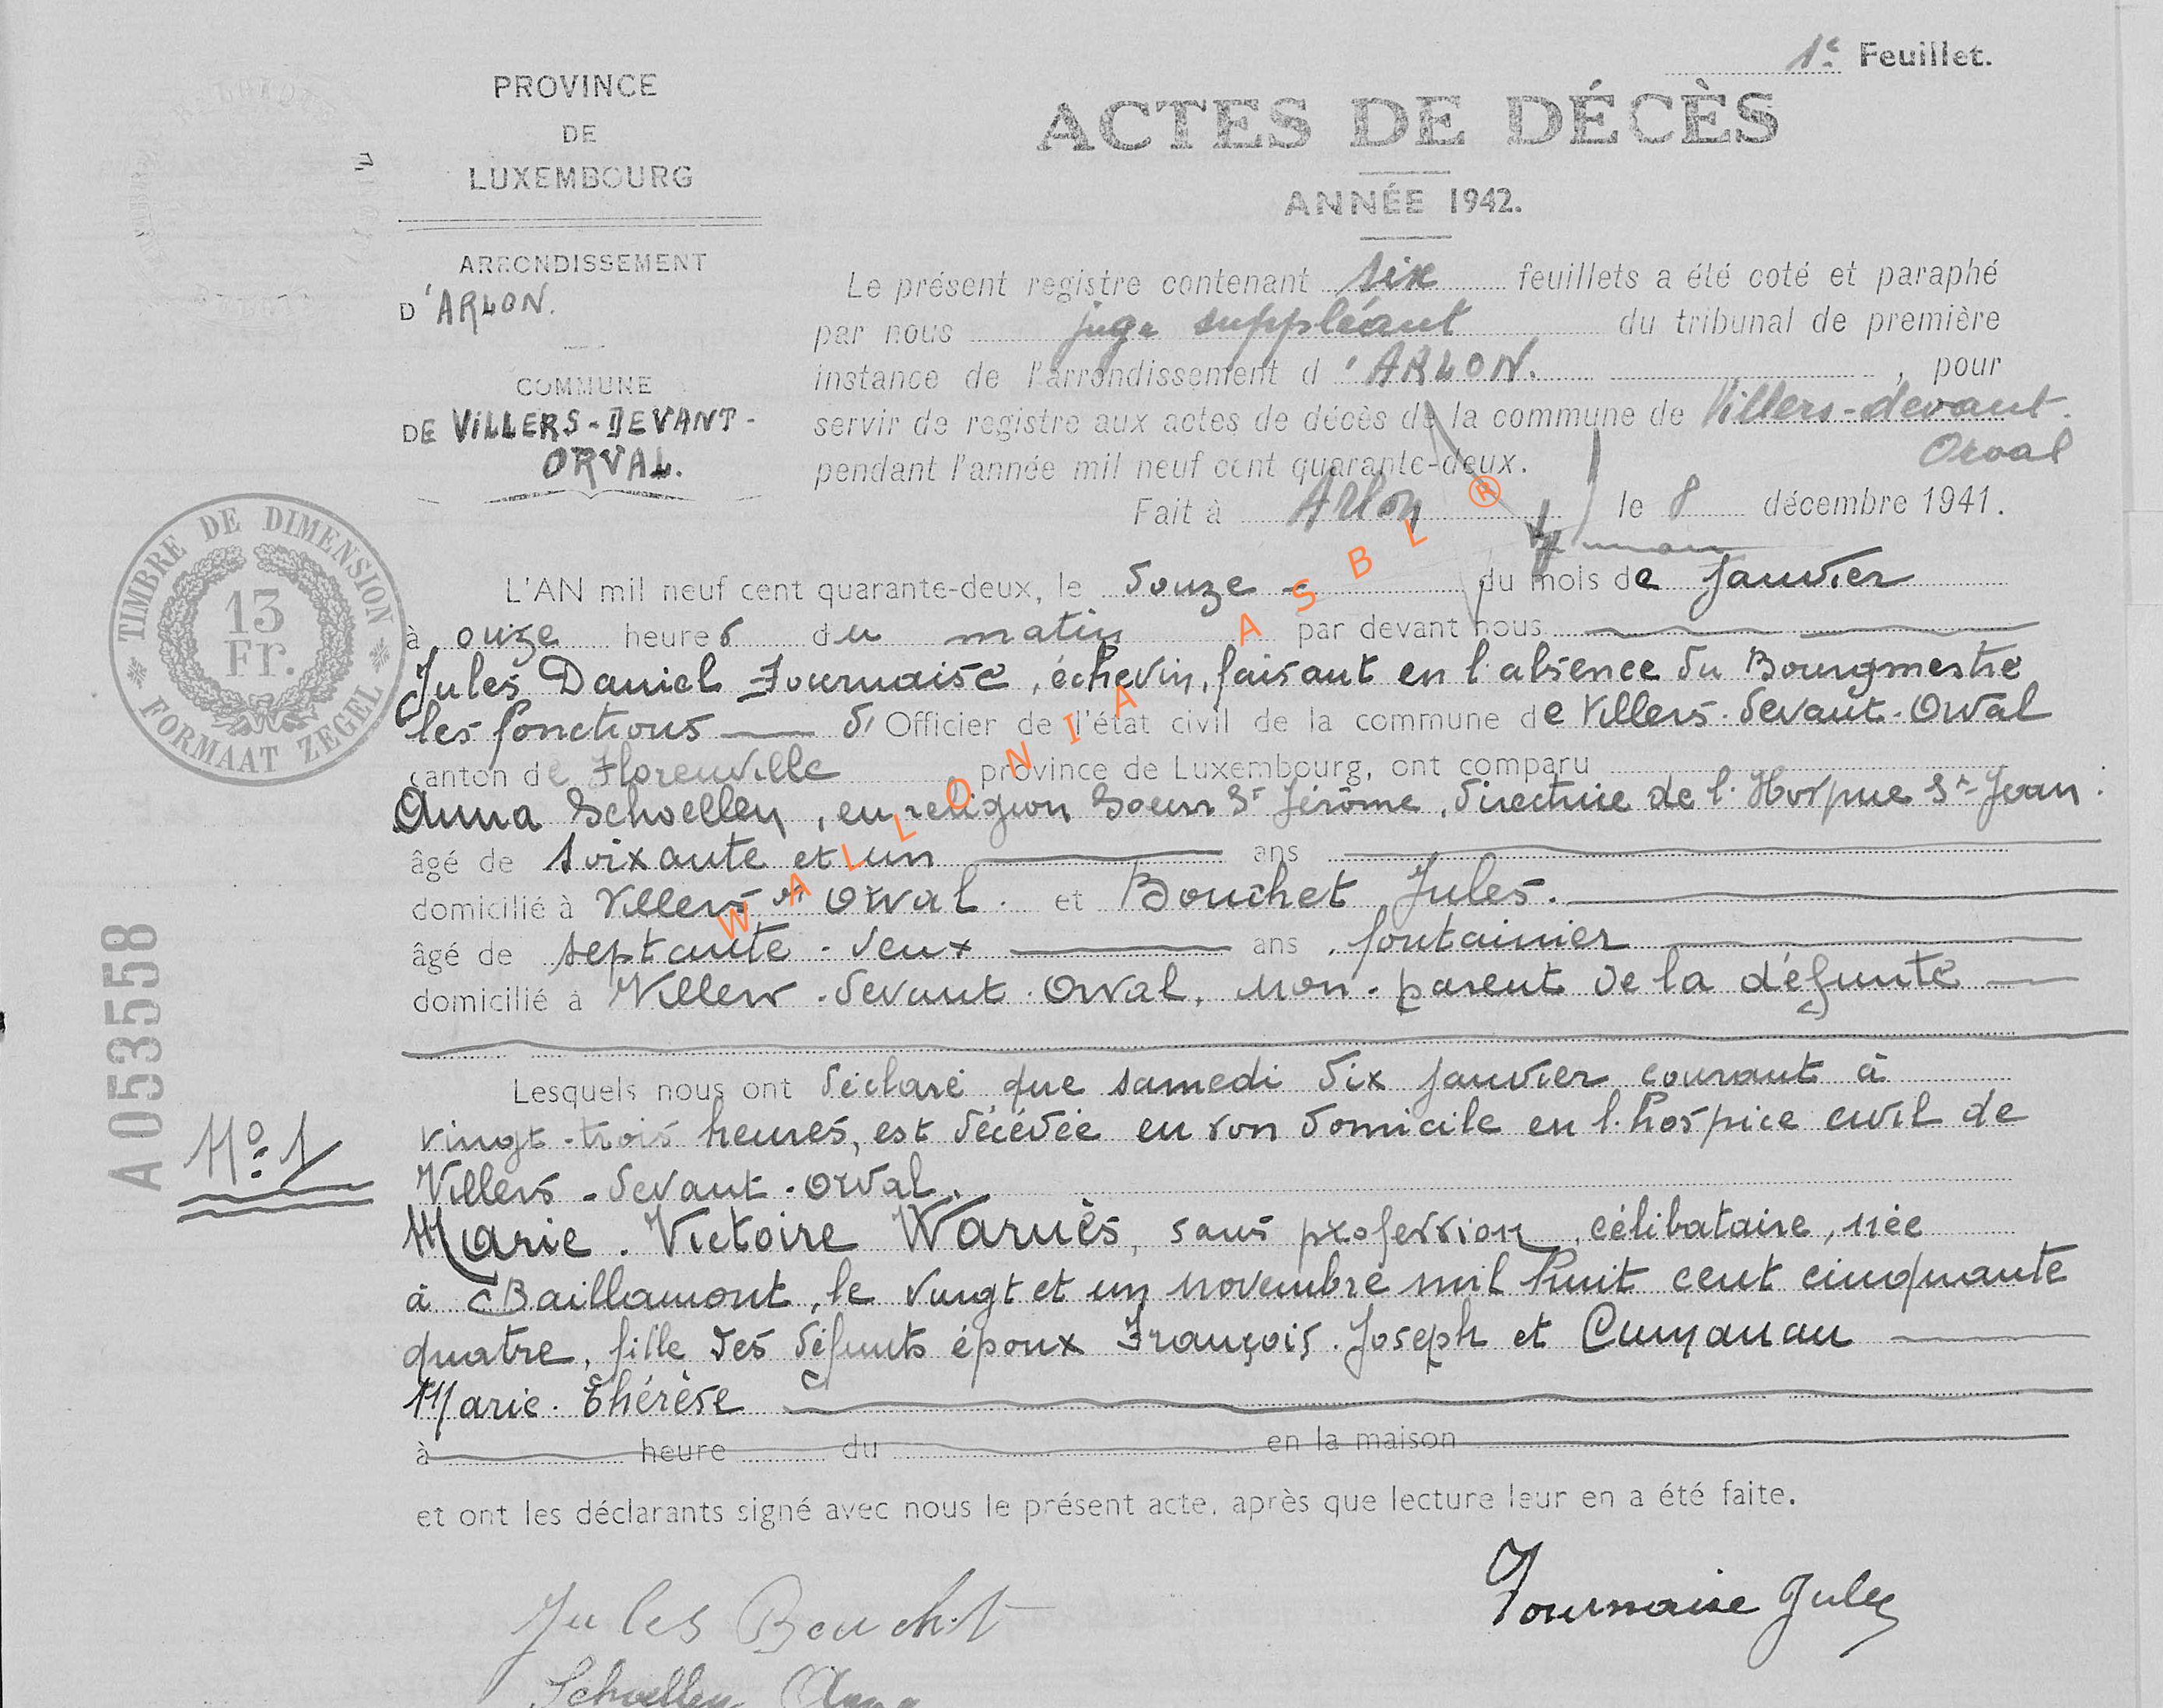 1e Feuillet.
PROVINCE
DE
LUXEMBOURG
ARRONDISSEMENT
D'ARLON.
COMMUNE
DE VILLERS-DEVANT-
ORVAL.
ACTES DE DÉCÈS
ANNÉE 1942.
Le présent registre contenant six feuillets a été coté et paraphé
par nous juge suppléant du tribunal de première
instance de l'arrondissement d'ARLON. , pour
servir de registre aux actes de décès de la commune de Villers-devant-
Orval
pendant l'année mil neuf cent quarante-deux.
Fait à Arlon le 8 décembre 1941.
TIMBRE DE DIMENSION
13
Fr.
FORMAAT ZEGEL
WALLONIA ASBL ®
L'AN mil neuf cent quarante-deux, le douze du mois de Janvier
à onze heures du matin par devant nous
Jules Daniel Fournaise, échevin, faisant en l'absence du Bourgmestre
les fonctions d'Officier de l'état civil de la commune de Villers-devant-Orval
canton de Florenville province de Luxembourg, ont comparu
Anna Schoellen, en religion Soeur St Jérôme, directrice de l'Hospice St Jean.
âgé de soixante et un ans
domicilié à Villers dt Orval. et Bouchet Jules.
âgé de septante-deux ans, fontainier
domicilié à Villers-devant-Orval, non-parent de la défunte
A053558
Lesquels nous ont déclaré que samedi dix janvier courant à
vingt-trois heures, est décédée en son domicile en l'hospice civil de
No 1
Villers-devant-Orval.
Marie-Victoire Warnès, sans profession, célibataire, née
à Baillamont, le vingt et un novembre mil huit cent cinquante
quatre, fille des défunts époux François-Joseph et
Marie-Thérèse
à heure du en la maison
et ont les déclarants signé avec nous le présent acte, après que lecture leur en a été faite.
Fournaise Jules
Jules Bouchet
Schoellen Anna